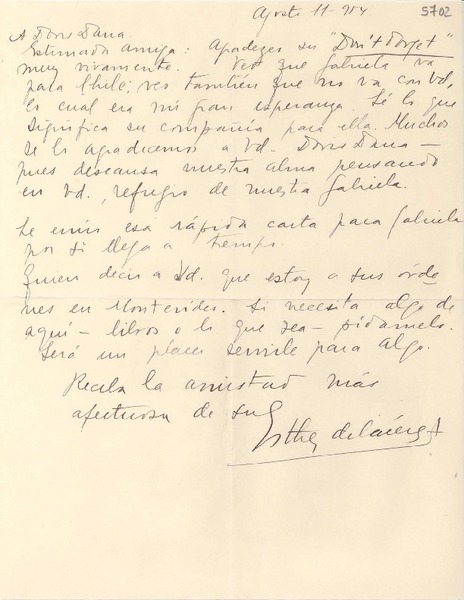 5702
Agosto 11 - 954
A Doris Dana.
Estimada amiga: Agradezco su "Don't Forget"
muy vivamente. Veo que Gabriela va
para Chile; veo también que no va con Vd,
lo cual era mi gran esperanza. Sé lo que
significa su compañía para ella. Muchos
se lo agradecemos a Vd. Doris Dana —
pues descansa nuestra alma pensando
en Vd, refugio de nuestra Gabriela.
Le envío esa rápida carta para Gabriela
por si llega a tiempo.
Quiero decir a Vd. que estoy a sus órde
nes en Montevideo. Si necesita algo de
aquí – libros o lo que sea – pídamelo.
Será un placer servirle para algo.
Reciba la amistad más
afectuosa de su
Esther de Cáceres